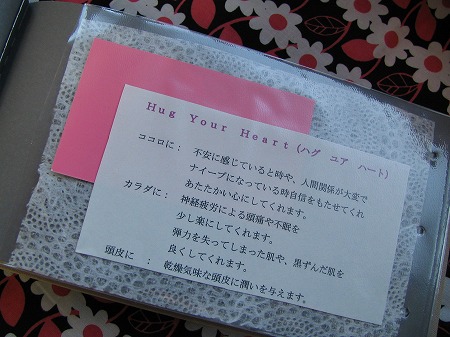 Hug Your Heart (ハグ ユア ハート)
ココロに： 不安に感じていると時や、人間関係が大変で
ナイーブになっている時自信をもたせてくれ
あたたかい心にしてくれます。
カラダに： 神経疲労による頭痛や不眠を
少し楽にしてくれます。
弾力を失ってしまった肌や、黒ずんだ肌を
良くしてくれます。
頭皮に ： 乾燥気味な頭皮に潤いを与えます。